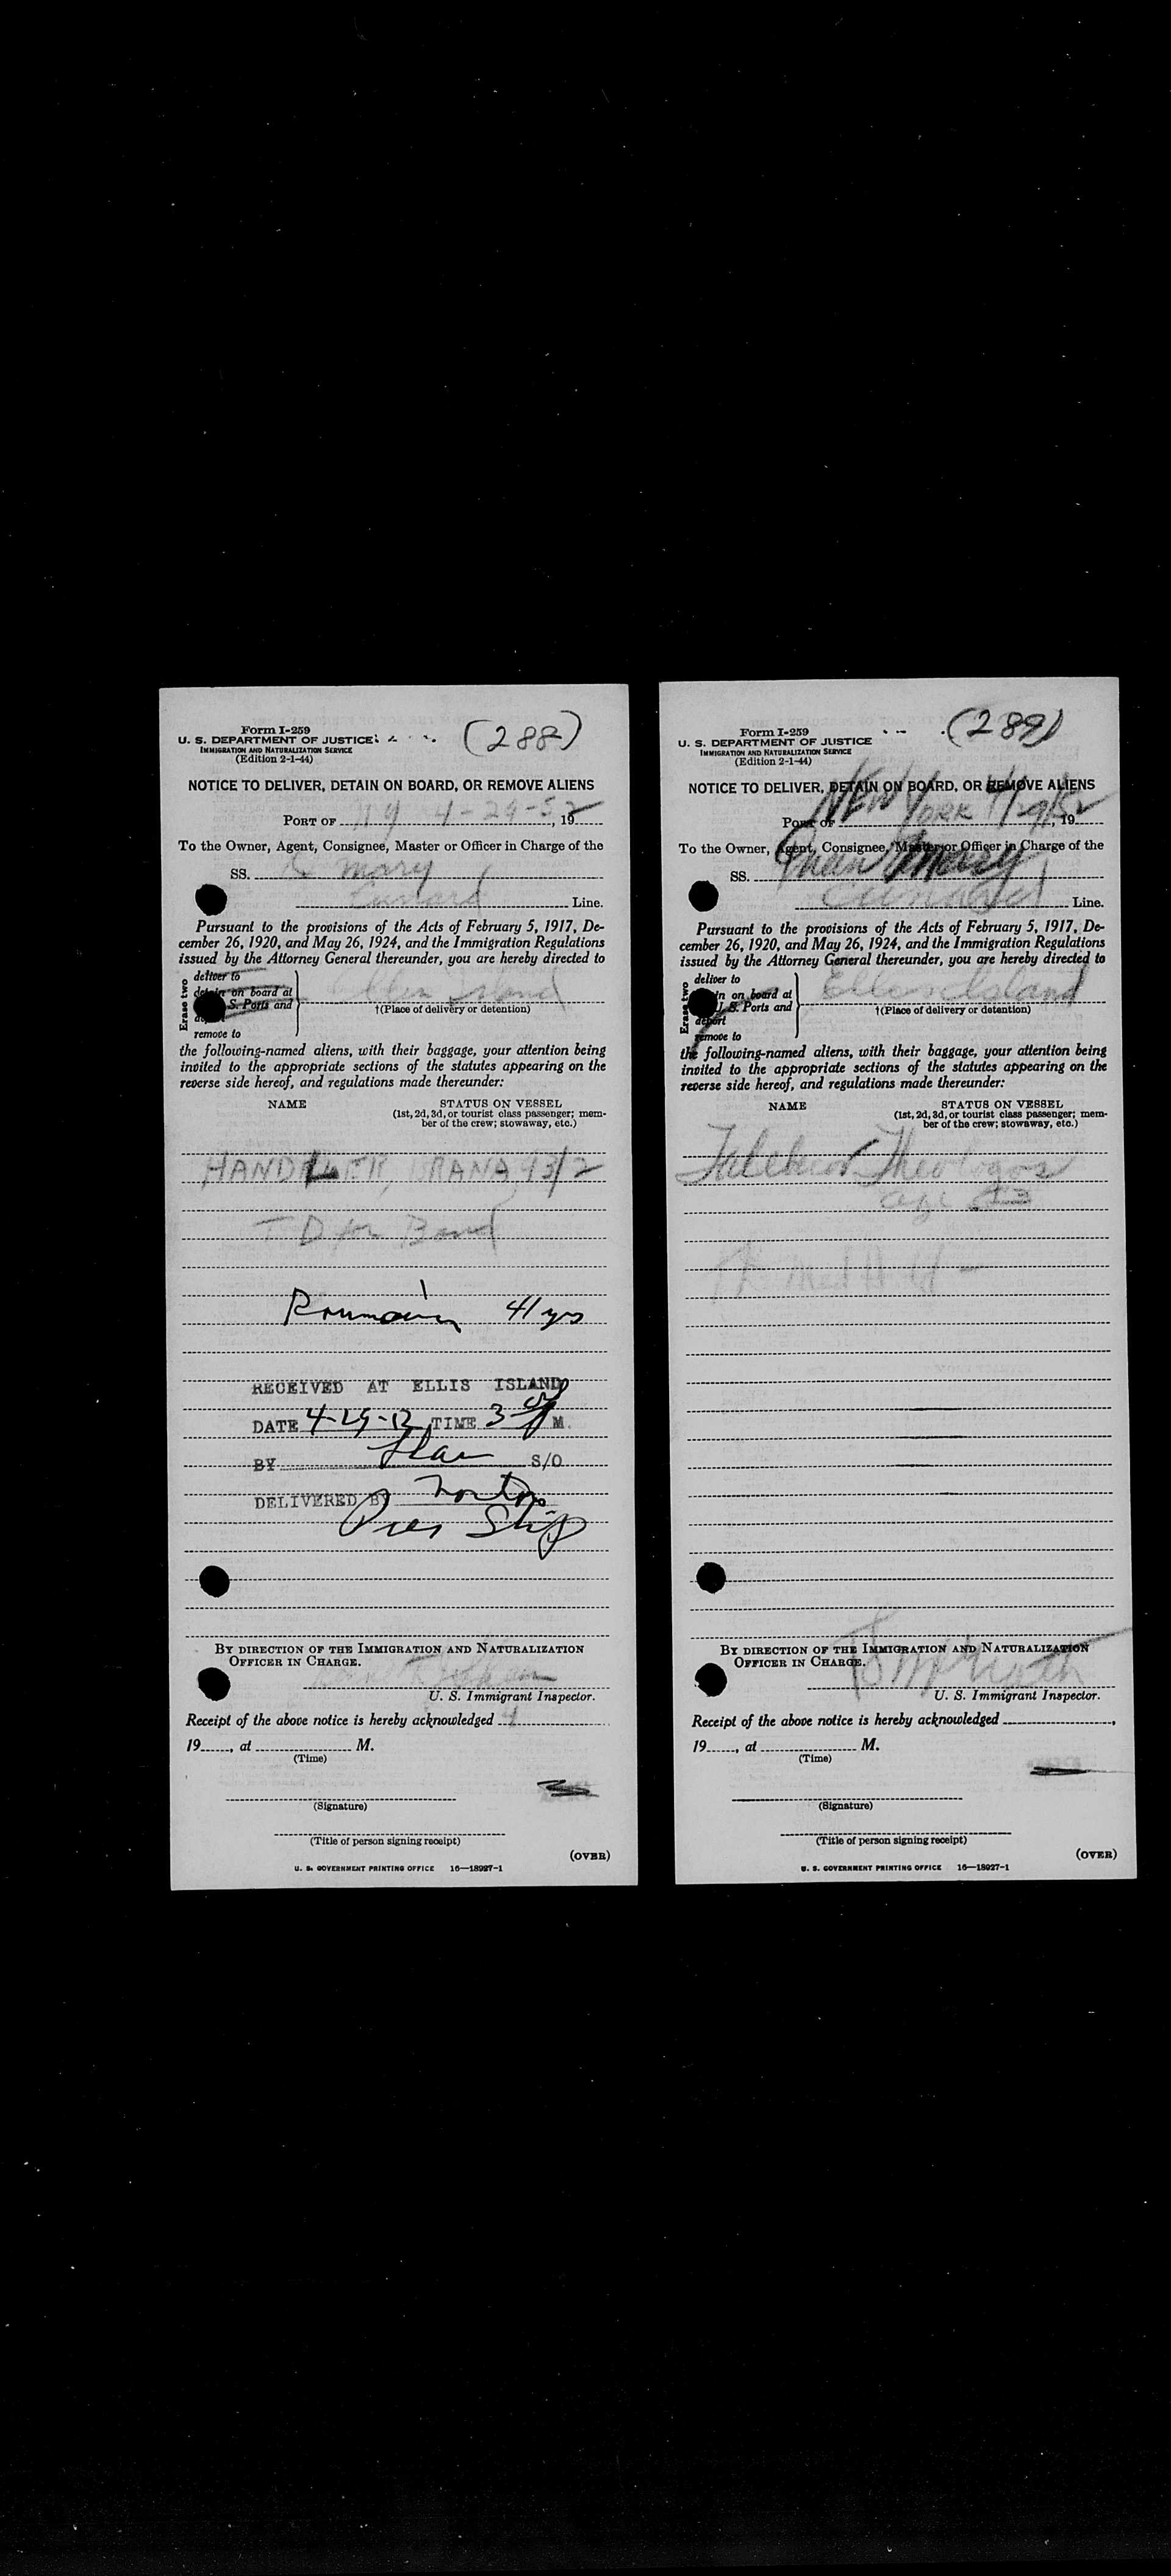 Form I-259
U. S. DEPARTMENT OF JUSTICE
IMMIGRATION AND NATURALIZATION SERVICE
(Edition 2-1-44)
(288)
NOTICE TO DELIVER, DETAIN ON BOARD, OR REMOVE ALIENS
PORT OF NY 4-29-52, 19
To the Owner, Agent, Consignee, Master or Officer in Charge of the
SS. Q Mary
Cunard Line.
Pursuant to the provisions of the Acts of February 5, 1917, De-
cember 26, 1920, and May 26, 1924, and the Immigration Regulations
issued by the Attorney General thereunder, you are hereby directed to
Erase two
deliver to
on board at
S. Ports and
remove to
Ellis Island
†(Place of delivery or detention)
the following-named aliens, with their baggage, your attention being
invited to the appropriate sections of the statutes appearing on the
reverse side hereof, and regulations made thereunder:
NAME
STATUS ON VESSEL
(1st, 2d, 3d, or tourist class passenger; mem-
ber of the crew; stowaway, etc.)
HANDLER,
T.D for Bond
41 yrs
RECEIVED AT ELLIS ISLAND
DATE 4-29-12 TIME 3 M.
BY S/O
DELIVERED BY Norton
Pier Ship
BY DIRECTION OF THE IMMIGRATION AND NATURALIZATION
OFFICER IN CHARGE.
U. S. Immigrant Inspector.
Receipt of the above notice is hereby acknowledged 4
19, at M.
(Time)
(Signature)
(Title of person signing receipt)
(OVER)
U. S. GOVERNMENT PRINTING OFFICE 16—18927-1
Form I-259
U. S. DEPARTMENT OF JUSTICE
IMMIGRATION AND NATURALIZATION SERVICE
(Edition 2-1-44)
(289)
NOTICE TO DELIVER, DETAIN ON BOARD, OR REMOVE ALIENS
PORT OF NEW YORK, 19
To the Owner, Agent, Consignee, Master or Officer in Charge of the
SS. Queen Mary
Cunard Line.
Pursuant to the provisions of the Acts of February 5, 1917, De-
cember 26, 1920, and May 26, 1924, and the Immigration Regulations
issued by the Attorney General thereunder, you are hereby directed to
Erase two
deliver to
on board at
S. Ports and
deport
remove to
Ellis Island
†(Place of delivery or detention)
the following-named aliens, with their baggage, your attention being
invited to the appropriate sections of the statutes appearing on the
reverse side hereof, and regulations made thereunder:
NAME
STATUS ON VESSEL
(1st, 2d, 3d, or tourist class passenger; mem-
ber of the crew; stowaway, etc.)
Theologos
age
Med Hold
BY DIRECTION OF THE IMMIGRATION AND NATURALIZATION
OFFICER IN CHARGE.
U. S. Immigrant Inspector.
Receipt of the above notice is hereby acknowledged,
19, at M.
(Time)
(Signature)
(Title of person signing receipt)
(OVER)
U. S. GOVERNMENT PRINTING OFFICE 16—18927-1